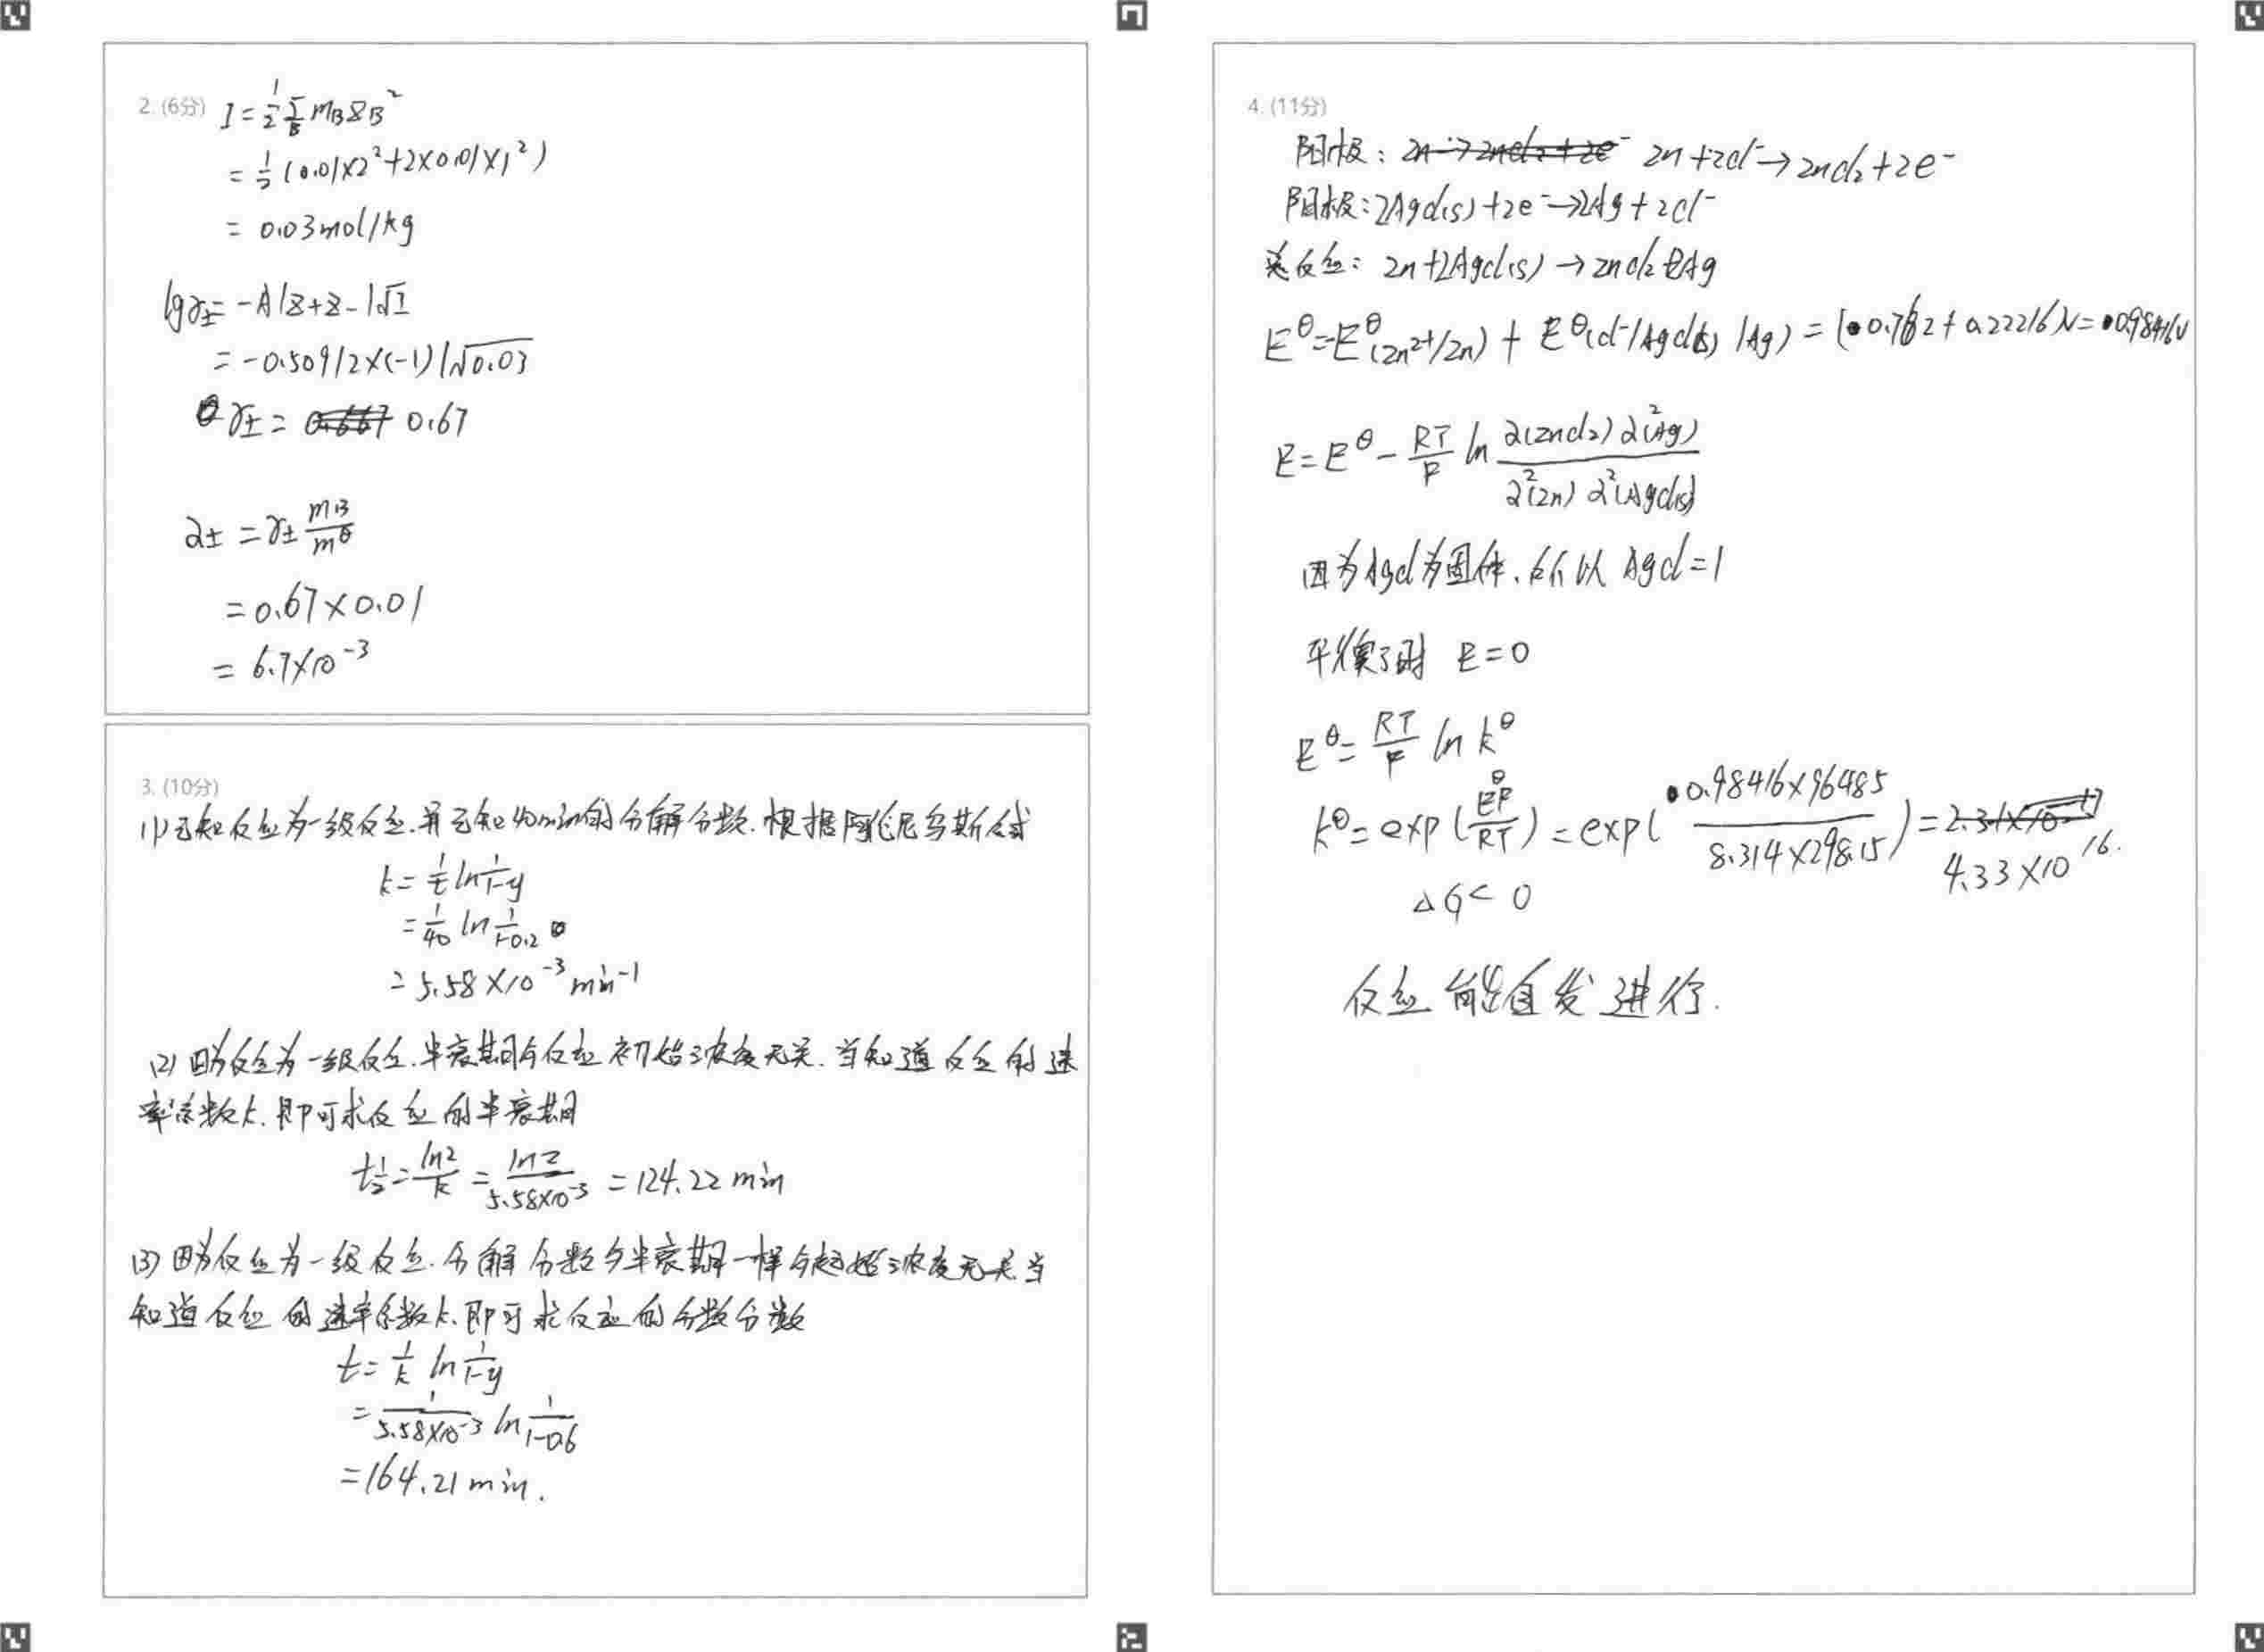 2. (6分) I = 1/2 Σ_B m_B z_B²
= 1/2 (0.01×2²+2×0.01×1²)
= 0.03 mol/kg
lgγ± = -A|z+z-|√I
= -0.509|2×(-1)|√0.03
γ± = 0.67
a± = γ± m_B/m^θ
= 0.67×0.01
= 6.7×10⁻³
3. (10分)
(1) 已知反应为一级反应. 并已知40min的分解分数. 根据阿伦尼乌斯公式
k = 1/t ln 1/1-y
= 1/40 ln 1/1-0.2
= 5.58×10⁻³ min⁻¹
(2) 因为反应为一级反应. 半衰期与反应初始浓度无关. 当知道反应的速
率系数k. 即可求反应的半衰期
t1/2 = ln2/k = ln2/5.58×10⁻³ = 124.22 min
(3) 因为反应为一级反应. 分解分数与半衰期一样与起始浓度无关. 当
知道反应的速率系数k. 即可求反应的分数分数
t = 1/k ln 1/1-y
= 1/5.58×10⁻³ ln 1/1-0.6
= 164.21 min.
4. (11分)
阳极: Zn+2Cl⁻→ZnCl₂+2e⁻
阳极: 2AgCl(s)+2e⁻→2Ag+2Cl⁻
总反应: Zn+2AgCl(s)→ZnCl₂+2Ag
E^θ = -E^θ(Zn²⁺/Zn) + E^θ(Cl⁻/AgCl(s)/Ag) = (0.762+0.22216)V = 0.98416V
E = E^θ - RT/F ln a(ZnCl₂) a²(Ag)/a²(Zn) a²(AgCl(s))
因为AgCl为固体、所以 AgCl=1
平衡时 E=0
E^θ = RT/F ln k^θ
k^θ = exp(E^θF/RT) = exp(0.98416×96485/8.314×298.15) = 4.33×10¹⁶.
△G < 0
反应能自发进行.